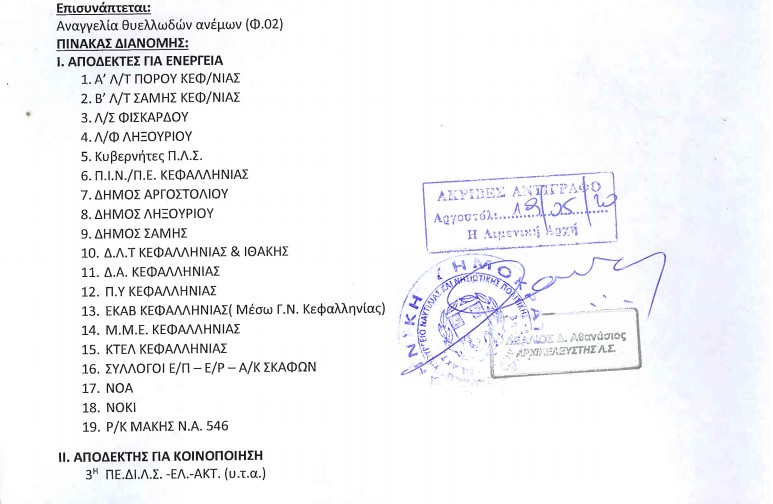 Επισυνάπτεται:
Αναγγελία θυελλωδών ανέμων (Φ.02)
ΠΙΝΑΚΑΣ ΔΙΑΝΟΜΗΣ:
Ι. ΑΠΟΔΕΚΤΕΣ ΓΙΑ ΕΝΕΡΓΕΙΑ
1. Α’ Λ/Τ ΠΟΡΟΥ ΚΕΦ/ΝΙΑΣ
2. Β’ Λ/Τ ΣΑΜΗΣ ΚΕΦ/ΝΙΑΣ
3. Λ/Σ ΦΙΣΚΑΡΔΟΥ
4. Λ/Φ ΛΗΞΟΥΡΙΟΥ
5. Κυβερνήτες Π.Λ.Σ.
6. Π.Ι.Ν./Π.Ε. ΚΕΦΑΛΛΗΝΙΑΣ
7. ΔΗΜΟΣ ΑΡΓΟΣΤΟΛΙΟΥ
8. ΔΗΜΟΣ ΛΗΞΟΥΡΙΟΥ
9. ΔΗΜΟΣ ΣΑΜΗΣ
10. Δ.Λ.Τ ΚΕΦΑΛΛΗΝΙΑΣ & ΙΘΑΚΗΣ
11. Δ.Α. ΚΕΦΑΛΛΗΝΙΑΣ
12. Π.Υ ΚΕΦΑΛΛΗΝΙΑΣ
13. ΕΚΑΒ ΚΕΦΑΛΛΗΝΙΑΣ( Μέσω Γ.Ν. Κεφαλληνίας)
14. Μ.Μ.Ε. ΚΕΦΑΛΛΗΝΙΑΣ
15. ΚΤΕΛ ΚΕΦΑΛΛΗΝΙΑΣ
16. ΣΥΛΛΟΓΟΙ Ε/Π – Ε/Ρ – Α/Κ ΣΚΑΦΩΝ
17. ΝΟΑ
18. ΝΟΚΙ
19. Ρ/Κ ΜΑΚΗΣ Ν.Α. 546
ΙΙ. ΑΠΟΔΕΚΤΗΣ ΓΙΑ ΚΟΙΝΟΠΟΙΗΣΗ
3Η ΠΕ.ΔΙ.Λ.Σ. -ΕΛ.-ΑΚΤ. (υ.τ.α.)
ΑΚΡΙΒΕΣ ΑΝΤΙΓΡΑΦΟ
Αργοστόλι:...19/05/20
Η Λιμενική Αρχή
Δ. Αθανάσιος
ΑΡΧΙΚΕΛΕΥΣΤΗΣ Λ.Σ.